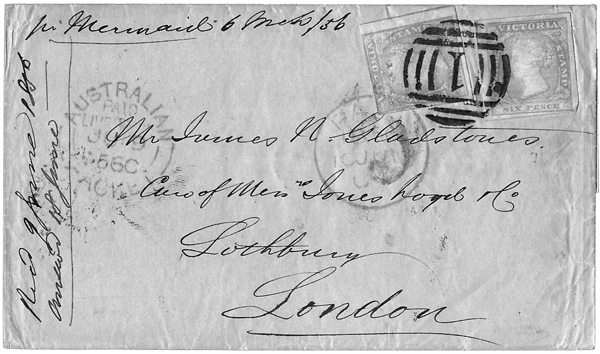 pr Mermaid 6 Mch/56
VICTORIA
STAMP
VICTORIA
STAMP
SIX PENCE
1
AUSTRALIAN
PAID
LIVERPOOL
56
PACKET
Mr James N. Gladstones.
Care of Messrs Jones Loyd & Co
Lothbury
London
Recd 9 June 1856
answd 10 June